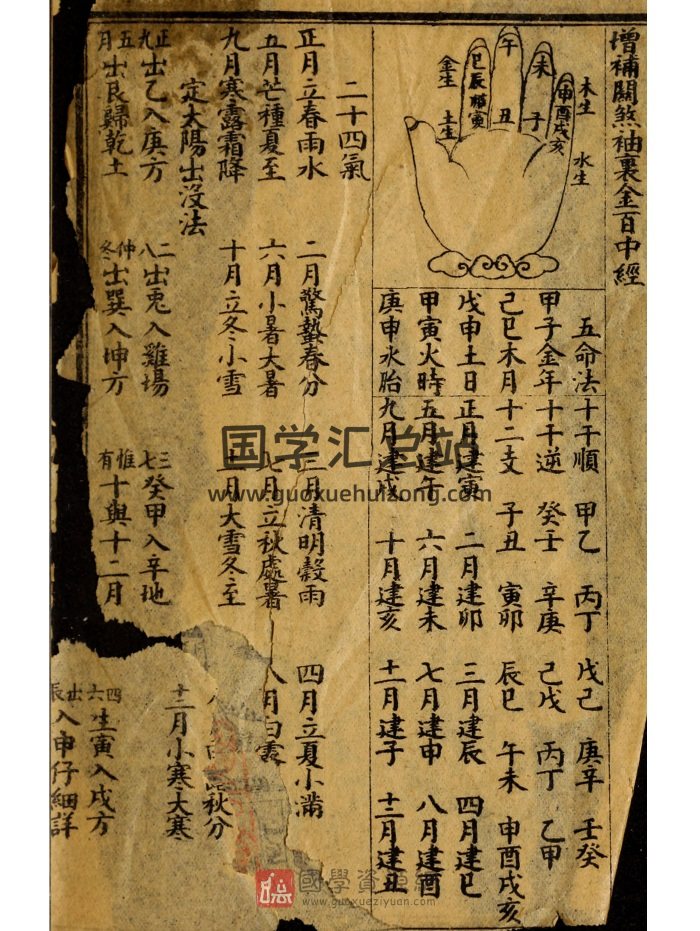 增補關煞袖裏金百中經
木生
水生
申酉戌亥
未
子
午
丑
巳辰卯寅
金生
土生
五命法 十干順 甲乙 丙丁 戊己 庚辛 壬癸
甲子金年 十干逆 癸壬 辛庚 己戊 丙丁 乙甲
己巳木月 十二支 子丑 寅卯 辰巳 午未 申酉戌亥
戊申土日 正月建寅 二月建卯 三月建辰 四月建巳
甲寅火時 五月建午 六月建未 七月建申 八月建酉
庚申水胎 九月建戌 十月建亥 十一月建子 十二月建丑
二十四氣
正月立春雨水 二月驚蟄春分 三月清明穀雨 四月立夏小滿
五月芒種夏至 六月小暑大暑 七月立秋處暑 八月白露
秋分
九月寒露霜降 十月立冬小雪 十一月大雪冬至 十二月小寒大寒
定太陽出沒法
正九出乙入庚方 二八出兎入雞場 三七癸甲入辛地 四六生寅入戌方
五月出艮歸乾土 仲冬出巽入坤方 惟有十與十二月 出辰入申仔細詳
国学汇总站
www.guoxuehuizong.com
國學資源網
www.guoxueziyuan.com